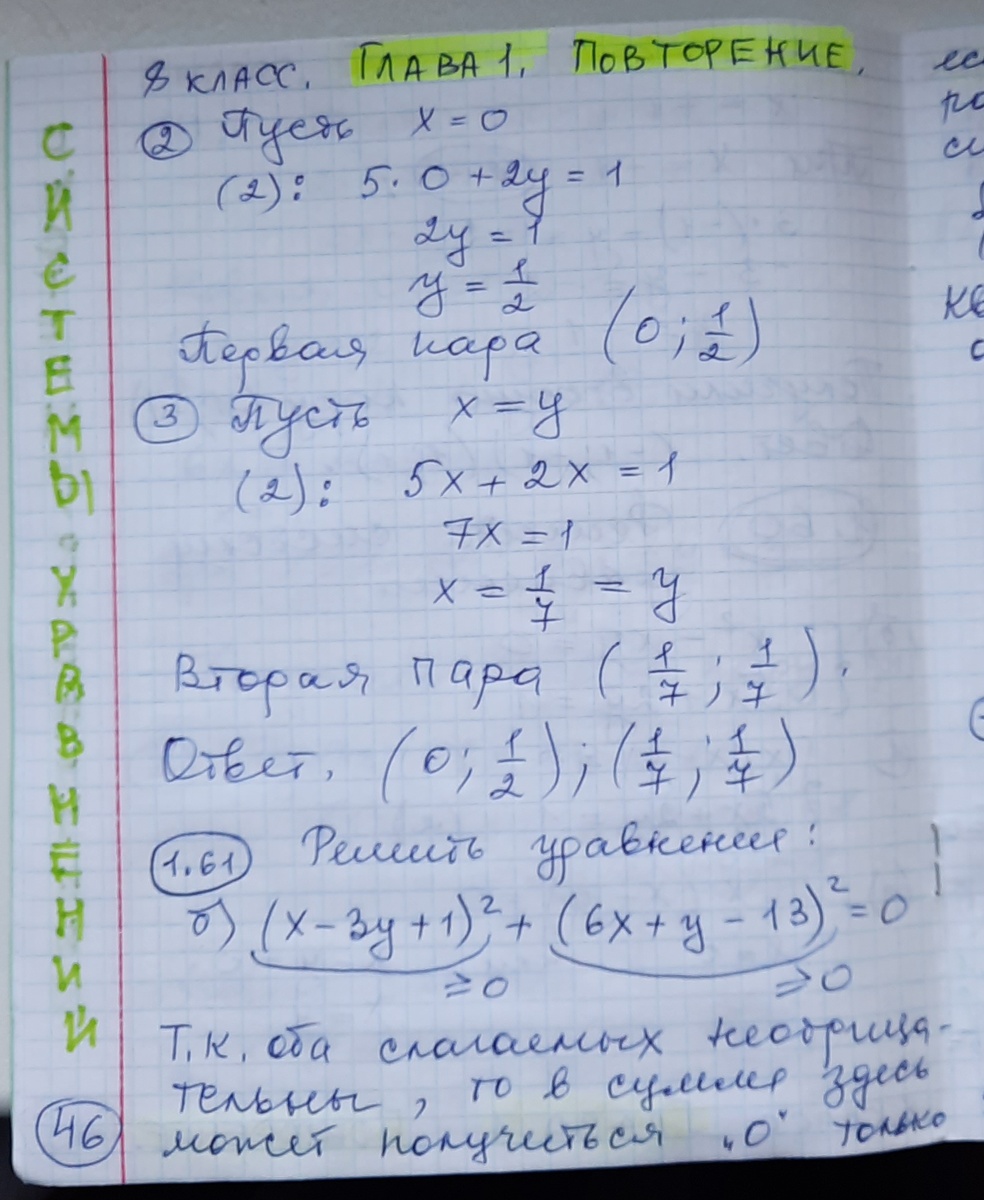 8 КЛАСС. ГЛАВА 1. ПОВТОРЕНИЕ.
СИСТЕМЫ УРАВНЕНИЙ
② Пусть x = 0
(2): 5·0 + 2y = 1
2y = 1
y = 1/2
Первая пара (0; 1/2)
③ Пусть x = y
(2): 5x + 2x = 1
7x = 1
x = 1/7 = y
Вторая пара (1/7; 1/7).
Ответ. (0; 1/2); (1/7; 1/7)
1.61 Решить уравнение:
б) (x - 3y + 1)² + (6x + y - 13)² = 0
≥0 ≥0
Т.к. оба слагаемых неотрица-
тельны, то в сумме здесь
может получиться „0" только
46